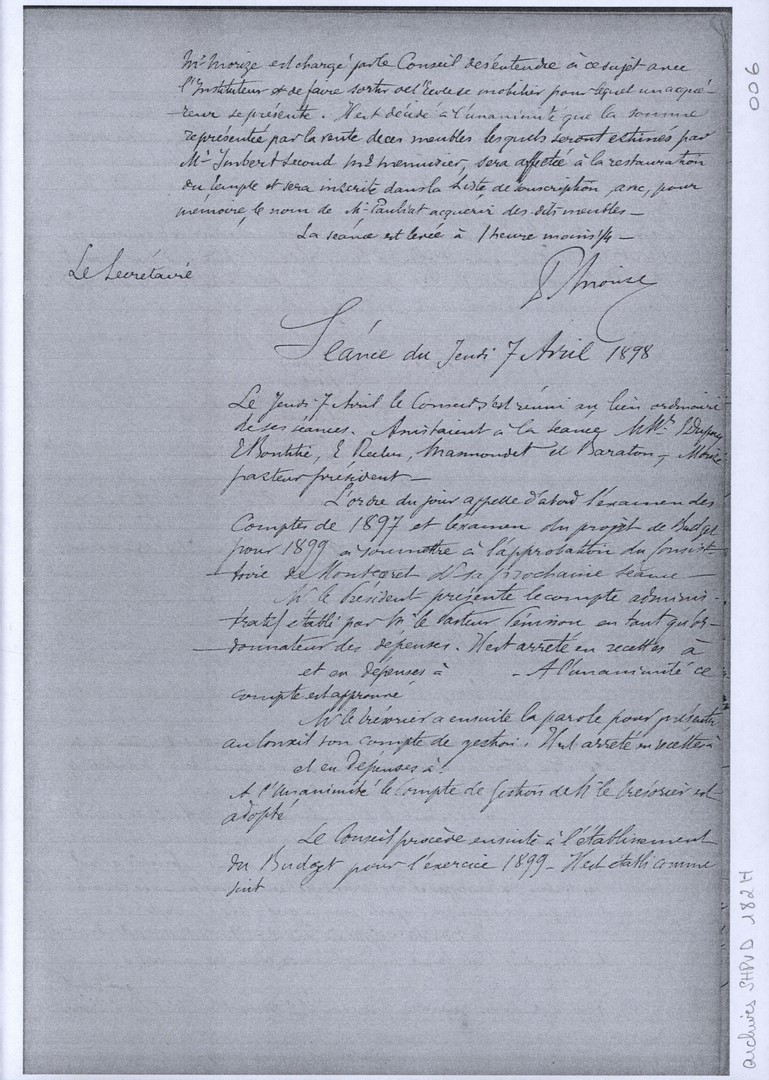 Mr Morize est chargé par le Conseil de s'entendre à ce sujet avec
l'Instituteur et de faire sortir de l'Ecole ce mobilier pour lequel un acqué-
reur se présente. Il est décidé à l'unanimité que la somme
représentée par la vente de ces meubles lesquels seront estimés par
Mr Imbert second md menuisier, sera affectée à la restauration
du temple et sera inscrite dans la Liste de souscription avec, pour
mémoire, le nom de Mr Pauliat acquérir des dits meubles_
La séance est levée à 1 heure moins 1/4 _
Le Secrétaire
Séance du Jeudi 7 Avril 1898
Le Jeudi 7 Avril le Conseil s'est réuni au lieu ordinaire
de ses séances. Assistaient à la séance MMrs Dupuy
E, E, et Baraton, Morize
pasteur président _
L'ordre du jour appelle d'abord l'examen des
Comptes de 1897 et l'examen du projet de Budget
pour 1899 à soumettre à l'approbation du Consist-
toire de Montcaret dès sa prochaine séance _
Mr le Président présente le compte adminis-
tratif établi par Mr le Pasteur en tant qu'or-
donnateur des dépenses. Il est arrêté en recettes à
et en dépenses à _ A l'unanimité ce
compte est approuvé
Mr le trésorier a ensuite la parole pour présenter
au Conseil son compte de gestion. Il est arrêté en recettes à
et en Dépenses à.
A l'unanimité le Compte de Gestion de Mr le Trésorier est
adopté
Le Conseil procède ensuite à l'établissement
du Budget pour l'exercice 1899 _ Il est établi comme
suit
006
archives SHPVD 182H